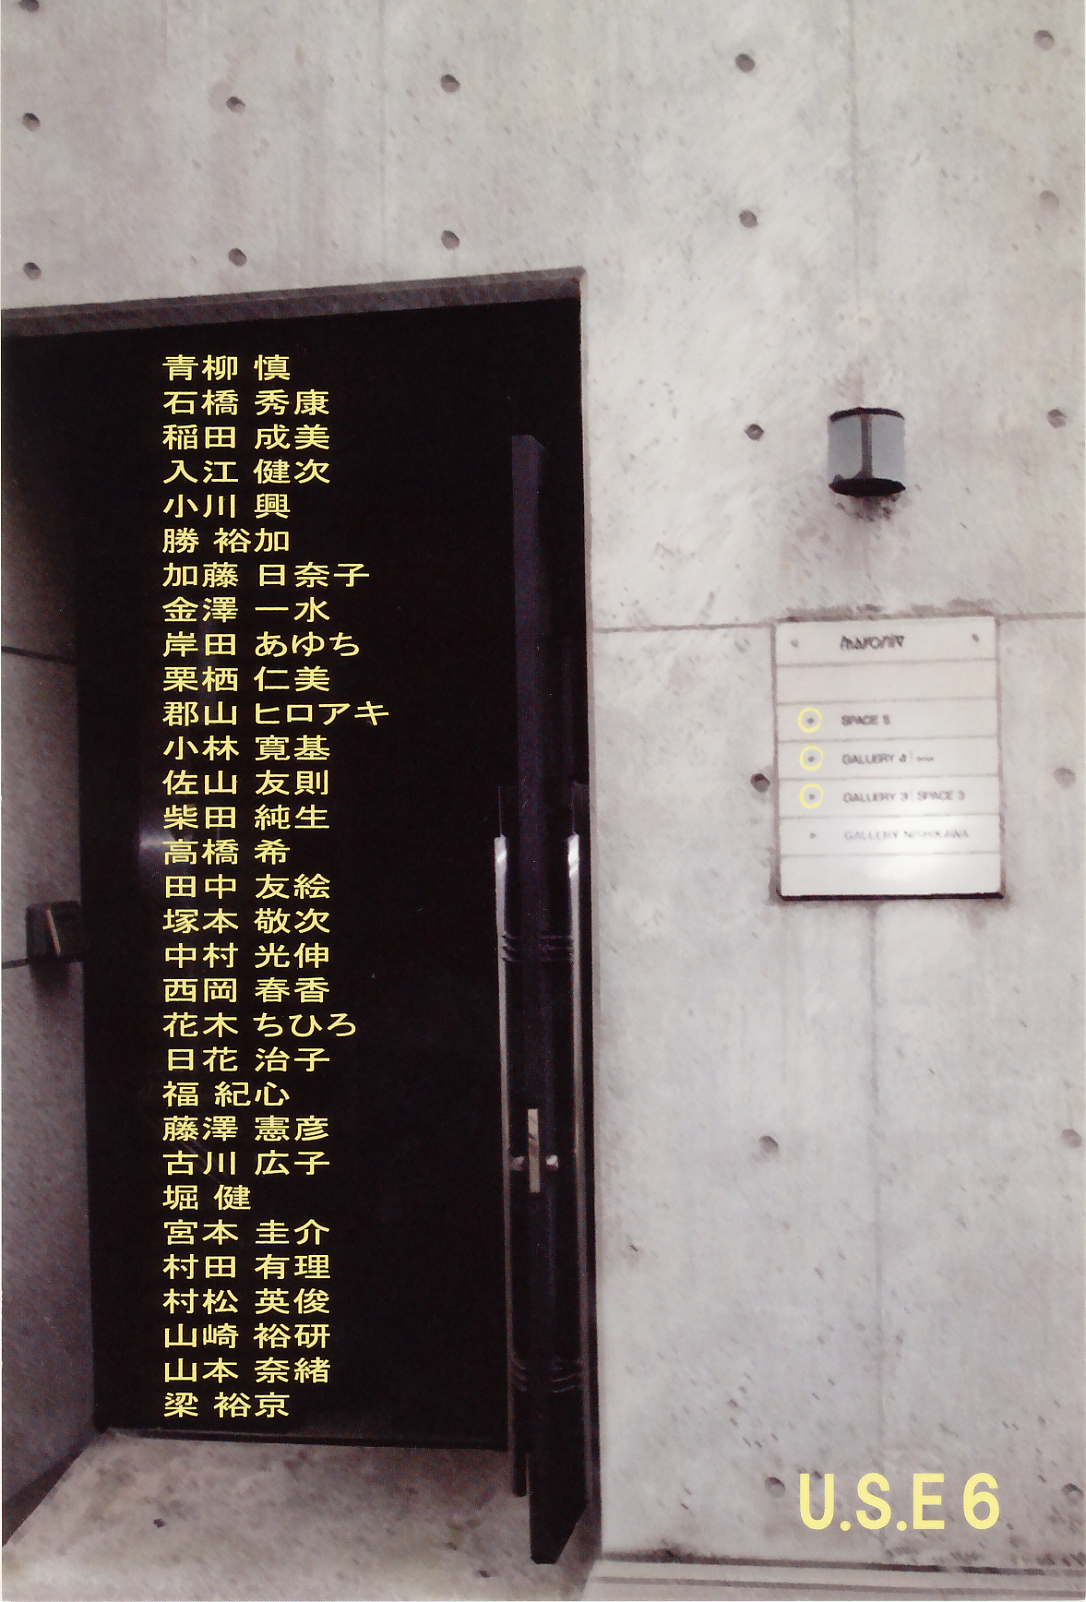 青柳 慎
石橋 秀康
稲田 成美
入江 健次
小川 興
勝 裕加
加藤 日奈子
金澤 一水
岸田 あゆち
栗栖 仁美
郡山 ヒロアキ
小林 寛基
佐山 友則
柴田 純生
高橋 希
田中 友絵
塚本 敬次
中村 光伸
西岡 春香
花木 ちひろ
日花 治子
福 紀心
藤澤 憲彦
古川 広子
堀 健
宮本 圭介
村田 有理
村松 英俊
山崎 裕研
山本 奈緒
梁 裕京
maronie
SPACE 5
GALLERY 4
GALLERY 3 SPACE 3
GALLERY NISHIKAWA
U.S.E 6